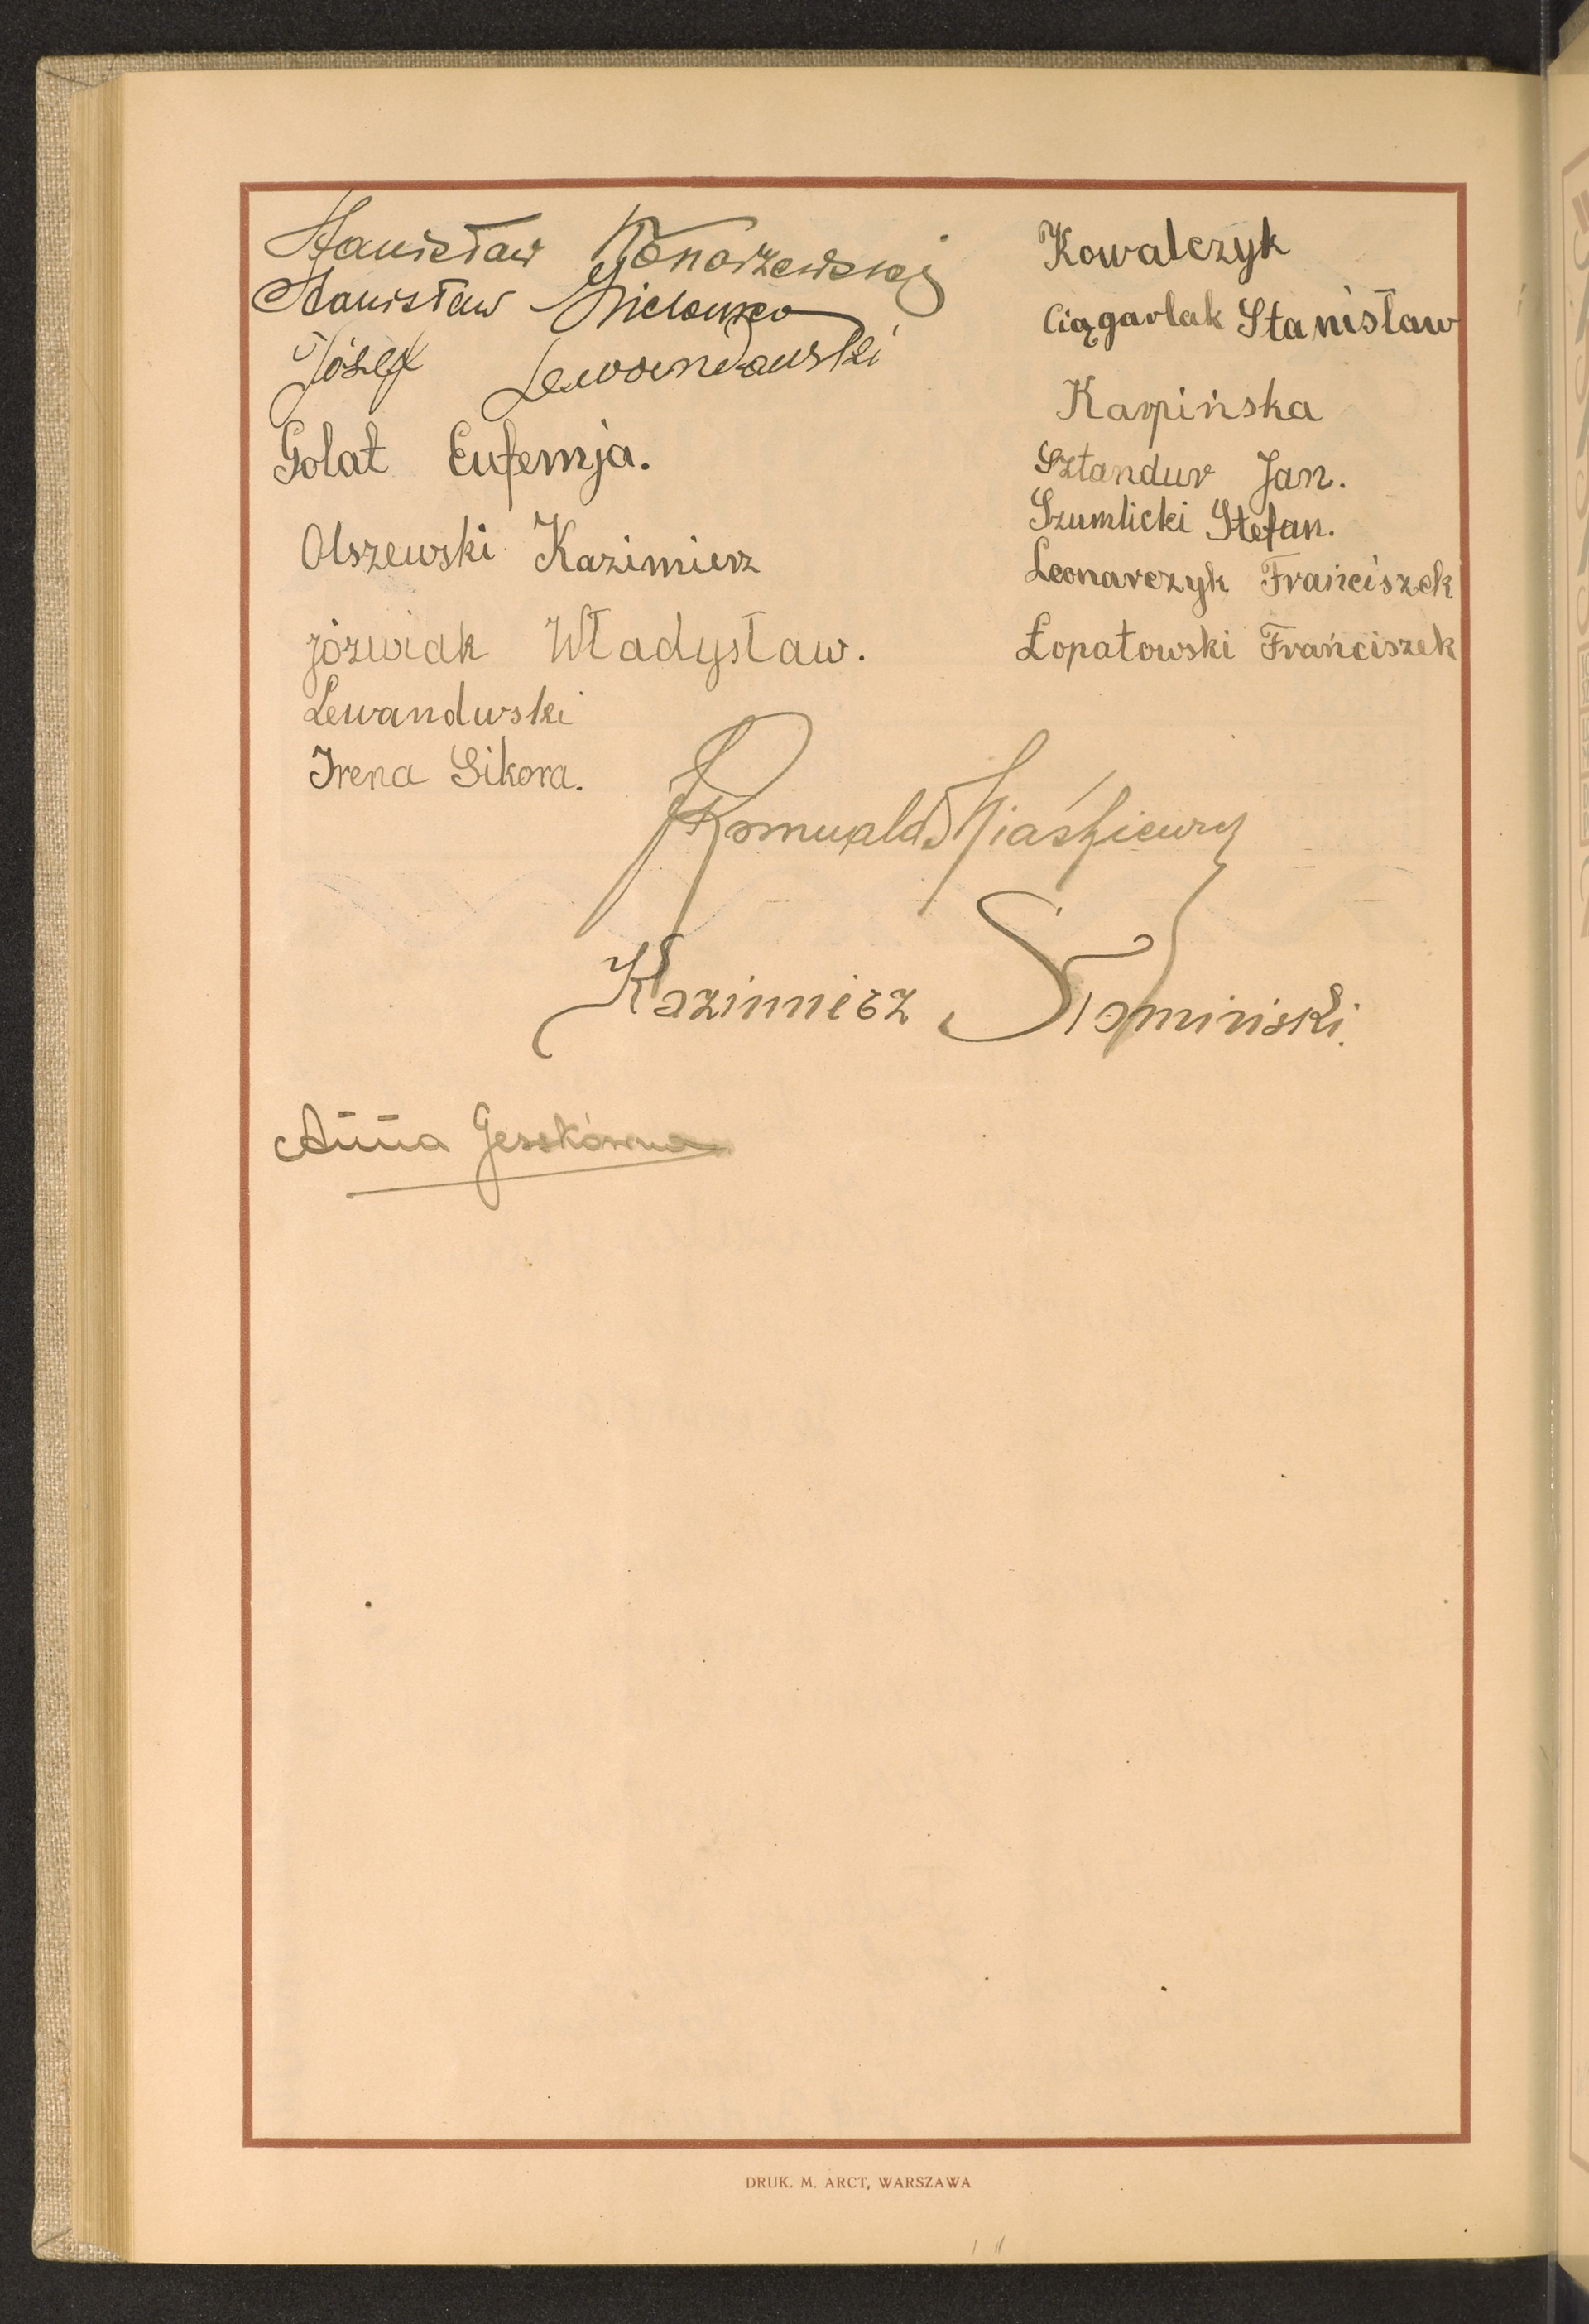 Stanisław Konarzewski
Stanisław
Józef Lewoondowski
Golat Eufemja.
Olszewski Kazimierz
józwiak Władysław.
Lewandwski
Irena Sikora.
Kowalczyk
Ciągarlak Stanisław
Karpińska
Sztandur Jan.
Szumlicki Stefan.
Leonarczyk Frańciszek
Łopatowski Frańciszek
Romuald Miaśkiewicz
Kazimierz Słomiński.
Anna Gesskówna
DRUK. M. ARCT, WARSZAWA